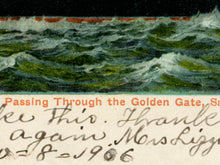 Passing Through the Golden Gate, S
ke this. Thank
again. Mrs Liz
-8-1906